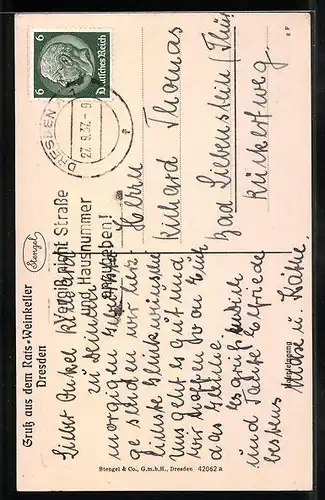 Gruß aus dem Rats-Weinkeller
Dresden
Stengel
Lieber Onkel Richard!
zu Deinem
morgigen
ge senden wir herz-
lichste Glückwünsche
Uns geht es gut und
wir hoffen von Euch
das
Es grüßt
und Tante Elfriede
bestens
u. Käthe
Haupteingang
Stengel & Co., G.m.b.H., Dresden 42062 a
Vergiß nicht Straße
und Hausnummer
anzugeben!
DRESDEN
27.9.37.-9
6
6
Deutsches Reich
Herrn
Richard Thomas
Bad Liebenstein/Thür
Rückertweg